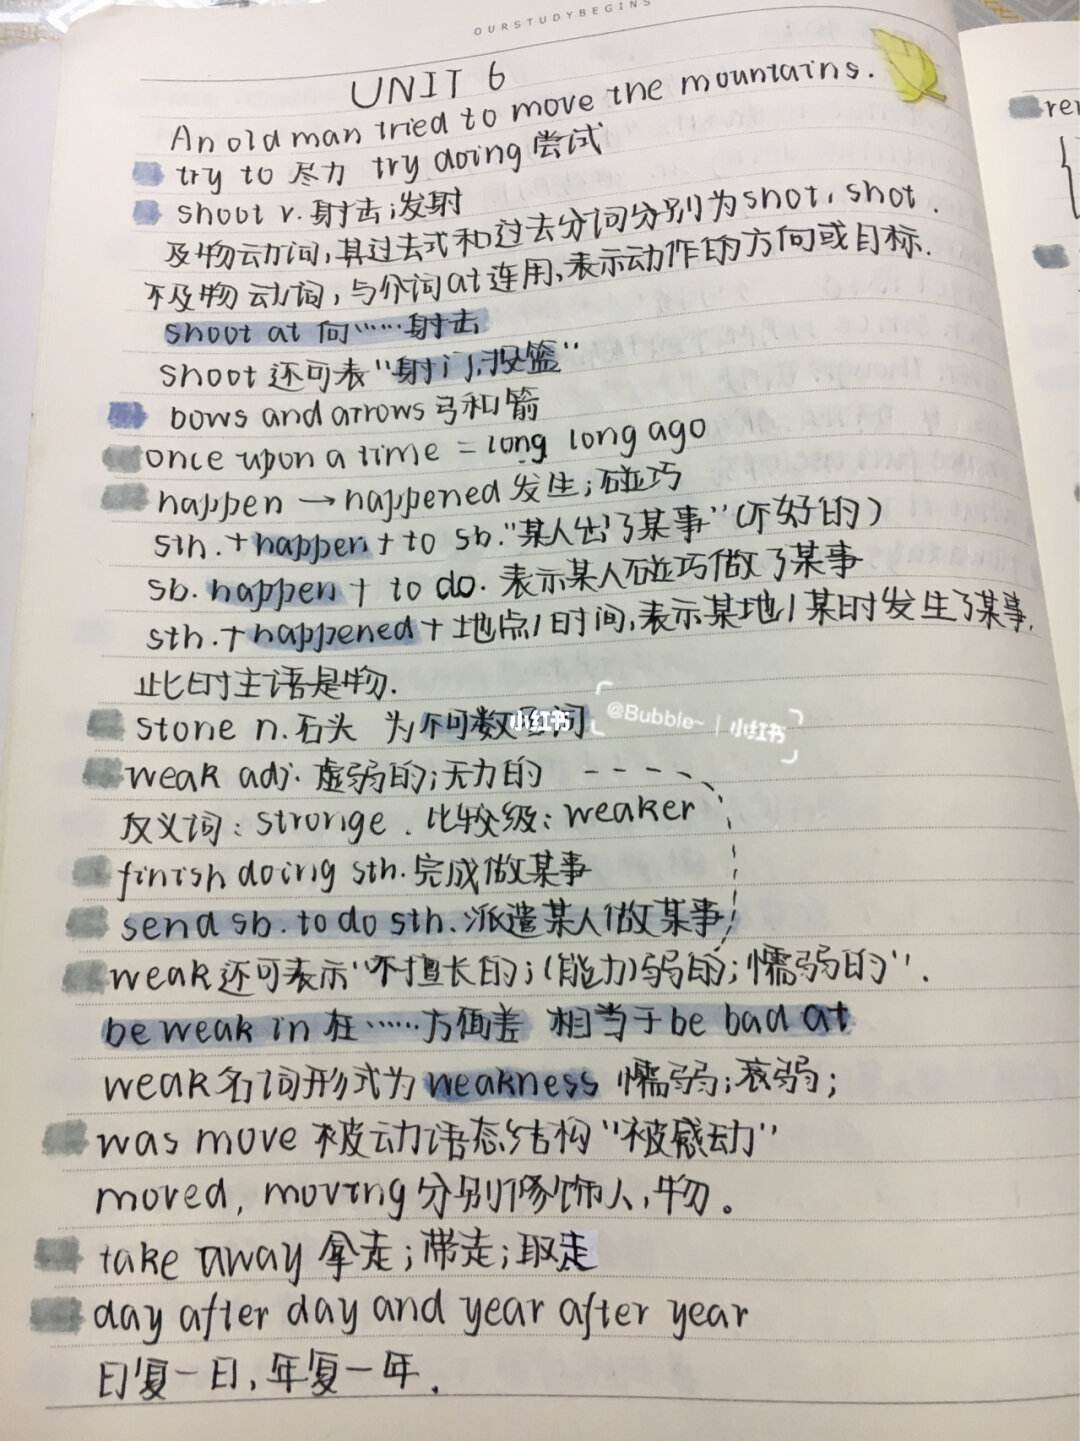 OURSTUDYBEGINS
UNIT 6
An old man tried to move the mountains.
try to 尽力 try doing 尝试
shoot v. 射击;发射
及物动词,其过去式和过去分词分别为shot, shot.
不及物动词,与介词at连用,表示动作的方向或目标.
shoot at 向……射击
shoot 还可表“射门,投篮”
bows and arrows 弓和箭
once upon a time = long long ago
happen → happened 发生;碰巧
sth. + happen + to sb. “某人出了某事”(不好的)
sb. happen + to do. 表示某人碰巧做了某事
sth. + happened + 地点/时间,表示某地/某时发生了某事.
此时主语是物.
stone n. 石头 为不可数名词
小红书
@Bubble~ | 小红书
weak adj. 虚弱的;无力的
反义词: stronge. 比较级: weaker
finish doing sth. 完成做某事
send sb. to do sth. 派遣某人做某事
weak 还可表示“不擅长的;(能力)弱的;懦弱的”.
be weak in 在……方面差 相当于 be bad at
weak 名词形式为 weakness 懦弱;衰弱;
was move 被动语态结构“被感动”
moved, moving 分别修饰人,物。
take away 拿走;带走;取走
day after day and year after year
日复一日,年复一年.
rer